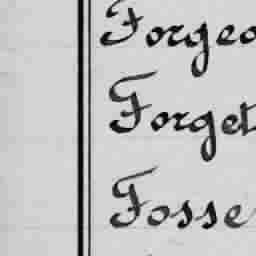 Forgeo
Forget
Fosse